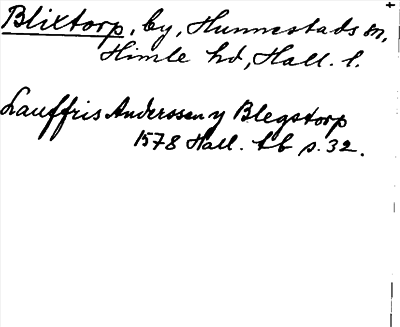 Blixtorp, by, Hunnestads sn,
Himle hd, Hall. l.
Lauffris Anderssen y Blegstorp
1578 Hall. tb s. 32.